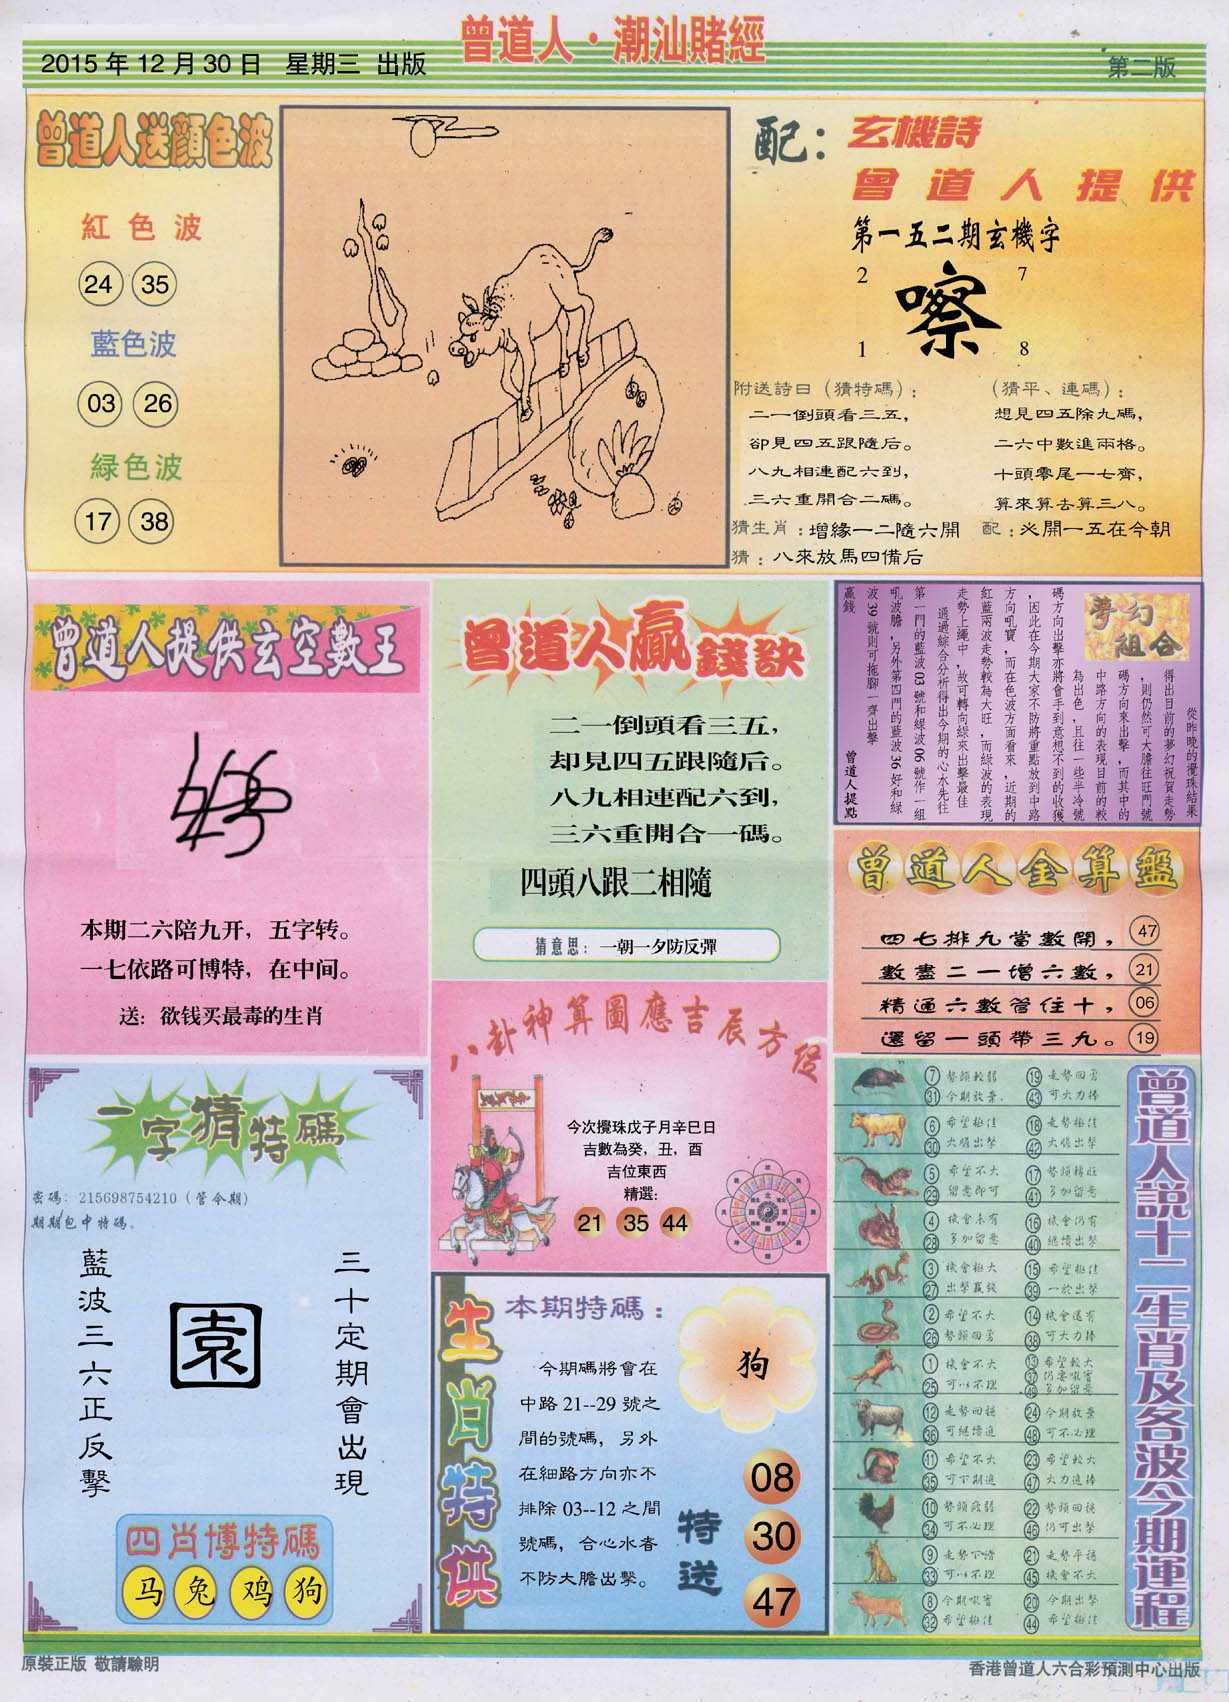 曾道人·潮汕賭經
2015年12月30日 星期三 出版
第二版
曾道人送顏色波
紅色波
24 35
藍色波
03 26
緑色波
17 38
配：玄機詩
曾道人提供
第一五二期玄機字
2 7
嚓
1 8
附送詩曰（猜特碼）：
二一倒頭看三五，
卻見四五跟隨后。
八九相連配六到，
三六重開合二碼。
（猜平、連碼）：
想見四五除九碼，
二六中數進兩格。
十頭零尾一七齊，
算來算去算三八。
猜生肖：增緣一二隨六開
配：必開一五在今朝
猜：八來放馬四備后
曾道人提供玄空數王
本期二六陪九开，五字转。
一七依路可博特，在中间。
送：欲钱买最毒的生肖
曾道人贏錢訣
二一倒頭看三五，
却見四五跟隨后。
八九相連配六到，
三六重開合一碼。
四頭八跟二相隨
猜意思：一朝一夕防反彈
夢幻組合
從昨晚的攪珠結果
得出目前的夢幻祝賀走勢
，則仍然可大膽往旺門號
碼方向來出擊，而其中的
中路方向的表現目前的較
為出色，且往一些半冷號
碼方向出擊亦將會手到意想不到的收獲
，因此在今期大家不防將重點放到中路
方向吼寶，而在色波方面看來，近期的
紅藍兩波走勢較為大旺，而綠波的表現
走勢上繩中，故可轉向綠來出擊最佳
通過綜合分析得出今期的心水先往
第一門的藍波03號和綠波06號作一組
吼波膽，另外第四門的藍波36好和綠
波39號則可拖腳一齊出擊
贏錢
曾道人提點
曾道人金算盤
四七排九當數開，47
數盡二一增六數，21
精通六數管住十，06
還留一頭帶三九。19
一字猜特碼
密碼：215698754210（管今期）
期期包中特碼。
藍波三六正反擊
園
三十定期會出現
四肖博特碼
马 兔 鸡 狗
八卦神算圖應吉辰方位
今次攪珠戊子月辛巳日
吉數為癸，丑，酉
吉位東西
精選：
21 35 44
生肖特供
本期特碼：
今期碼將會在
中路21--29號之
間的號碼，另外
在細路方向亦不
排除03--12之間
號碼，合心水者
不防大膽出擊。
狗
特送
08
30
47
曾道人説十二生肖及各波今期運程
7 勢頭較弱 19 走勢回勇
31 今期放棄 43 可大力捧
6 希望極佳 18 走勢極佳
30 大膽出擊 42 大膽出擊
5 希望不大 17 勢頭轉旺
29 留意即可 41 多加留意
4 機會未有 16 機會仍有
28 多加留意 40 繼續出擊
3 機會極大 15 希望極佳
27 出擊贏錢 39 一於出擊
2 希望不大 14 機會還有
26 勢頭回勇 38 可大力捧
1 機會不大 13 希望較大
25 可以不理 37 仍要吼實
49 多加留意
12 走勢回穩 24 今期放棄
36 可繼續追 48 可不必理
11 希望不大 23 希望較大
35 可下期追 47 大力追捧
10 勢頭疲弱 22 勢頭回穩
34 可不必理 46 仍可出擊
9 走勢下滑 21 走勢平穩
33 可以不理 45 機會不大
8 今期吼實 20 今期出擊
32 希望極佳 44 希望極佳
原裝正版 敬請驗明
香港曾道人六合彩預測中心出版